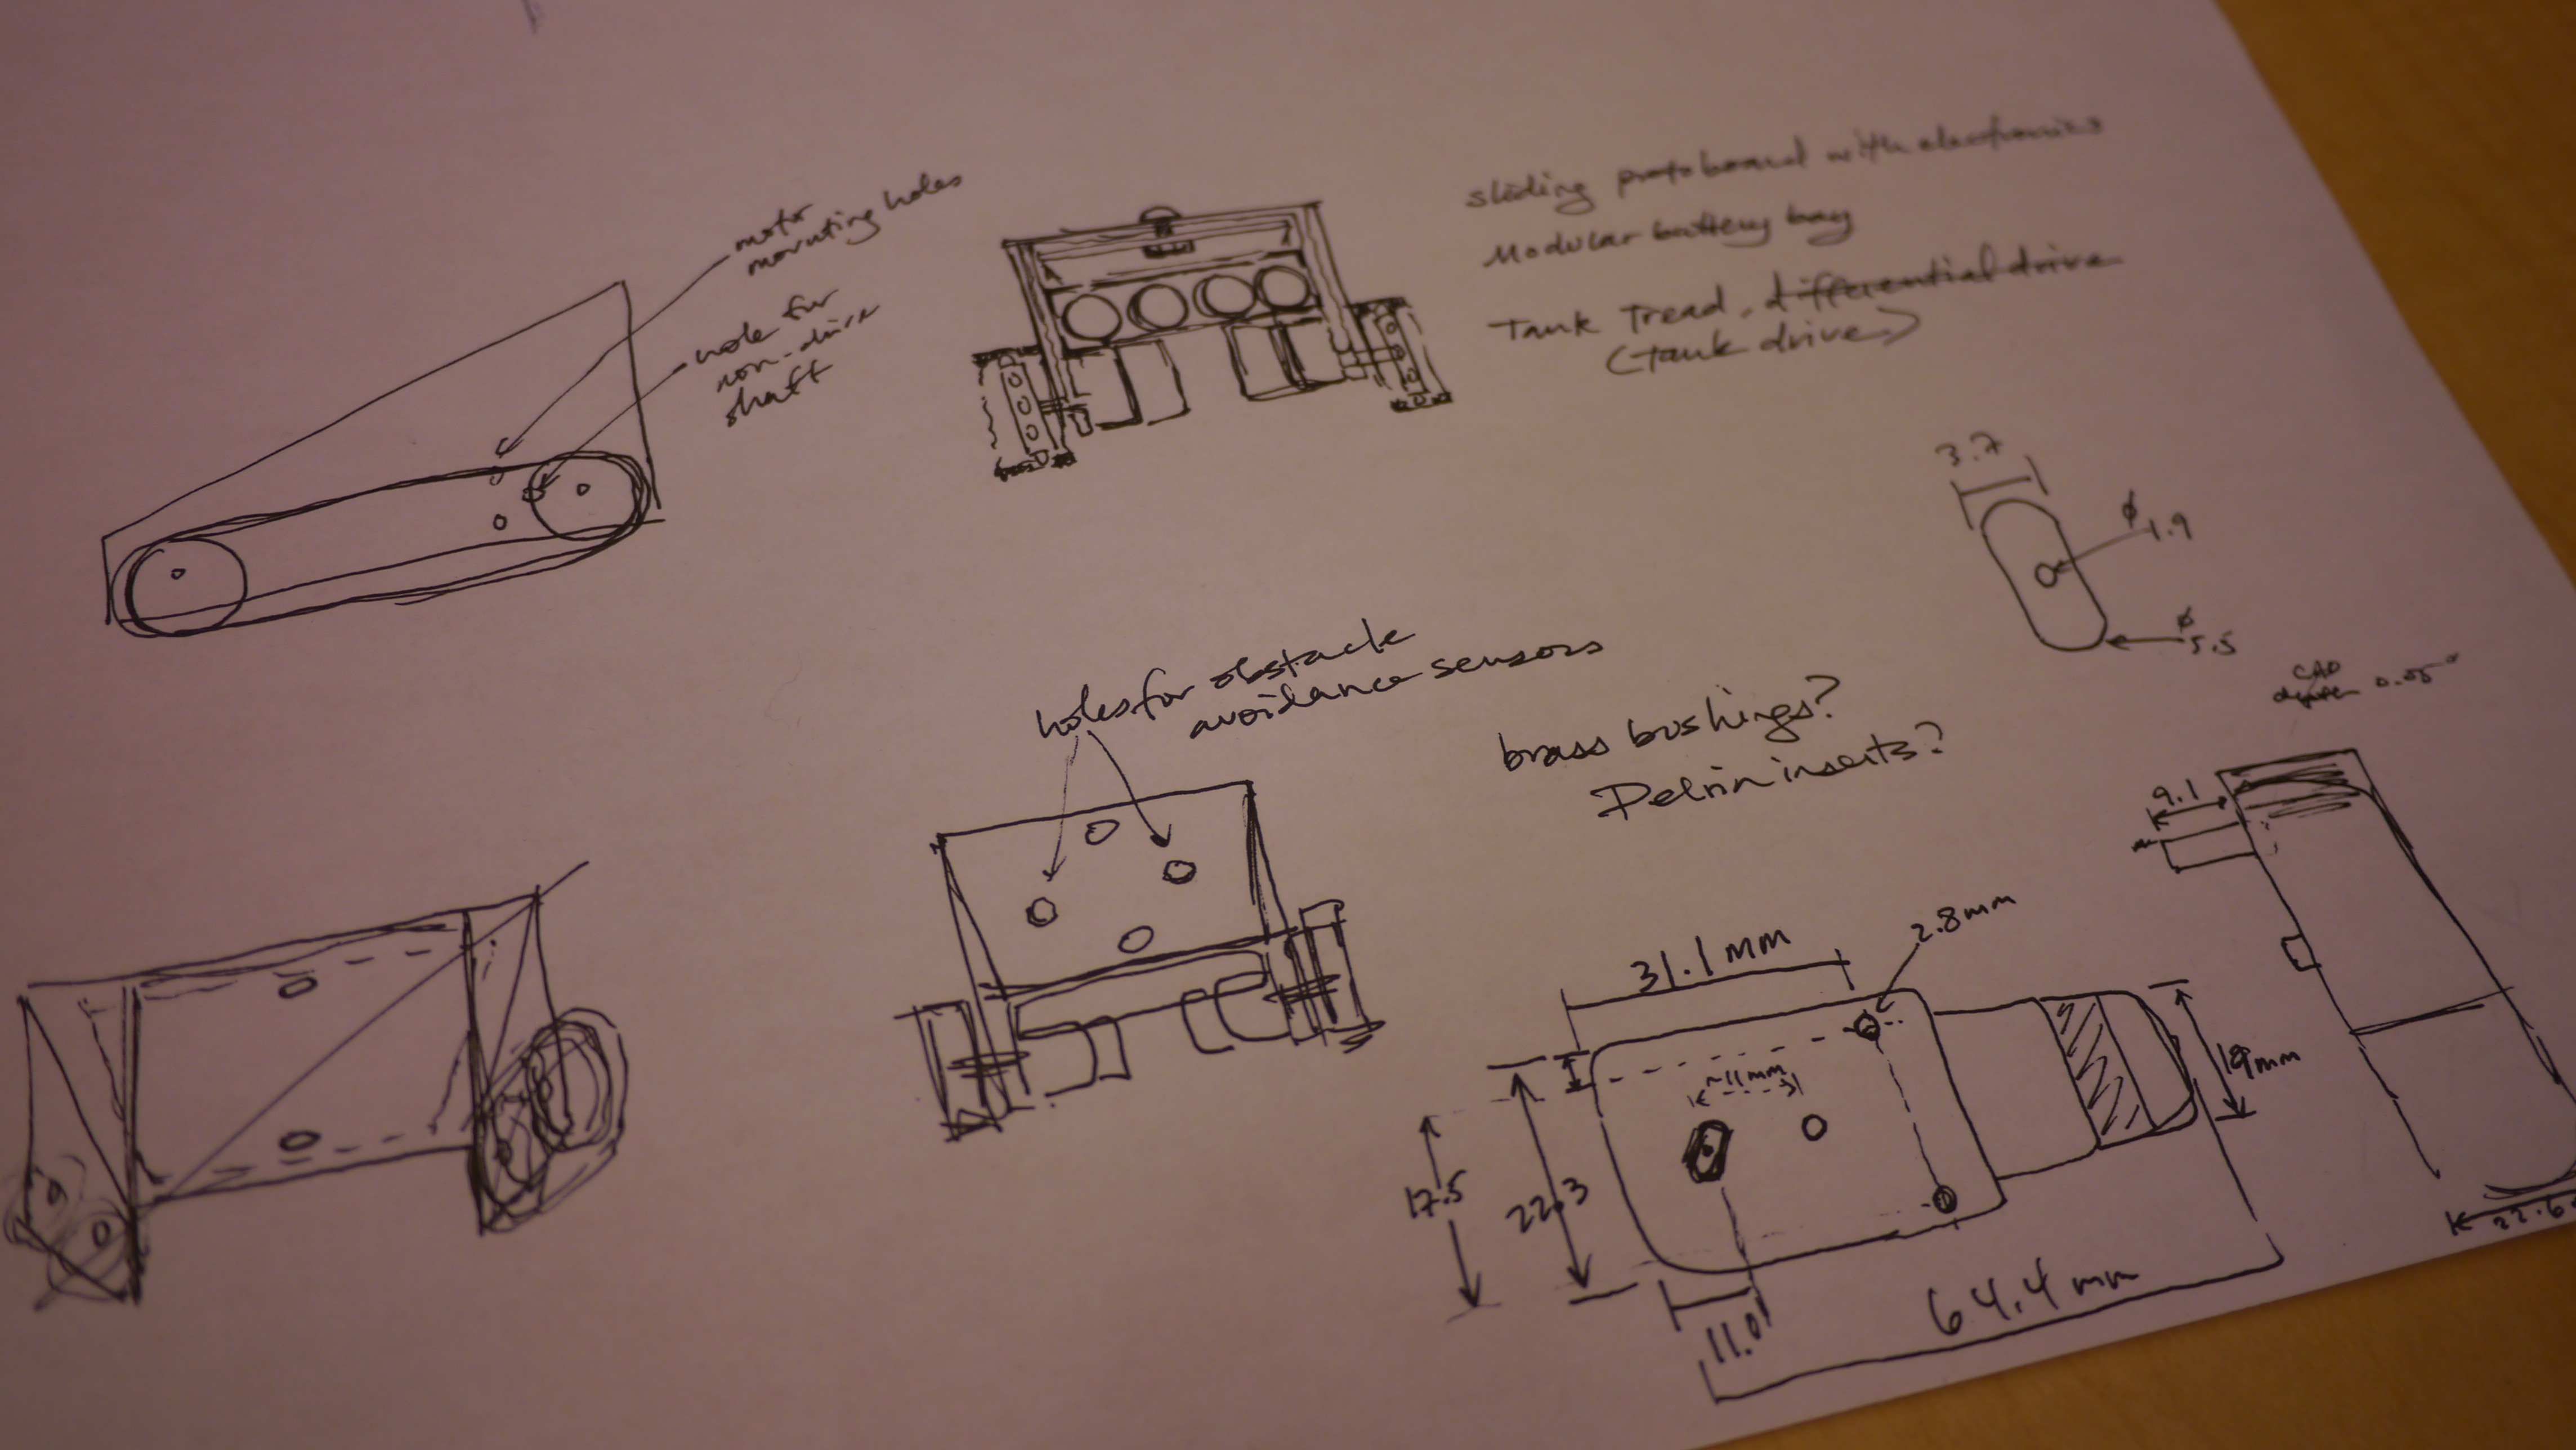 motor
mounting holes
hole for
non-drive
shaft
sliding protoboard with electronics
Modular battery bay
Tank Tread, differential drive
(tank drive)
3.7
ϕ
1.9
ϕ
5.5
CAD
0.05"
holes for obstacle
avoidance sensors
brass bushings?
Delrin inserts?
9.1
2.8mm
31.1 mm
~11mm
19mm
17.5
22.3
11.0
64.4 mm
22.6